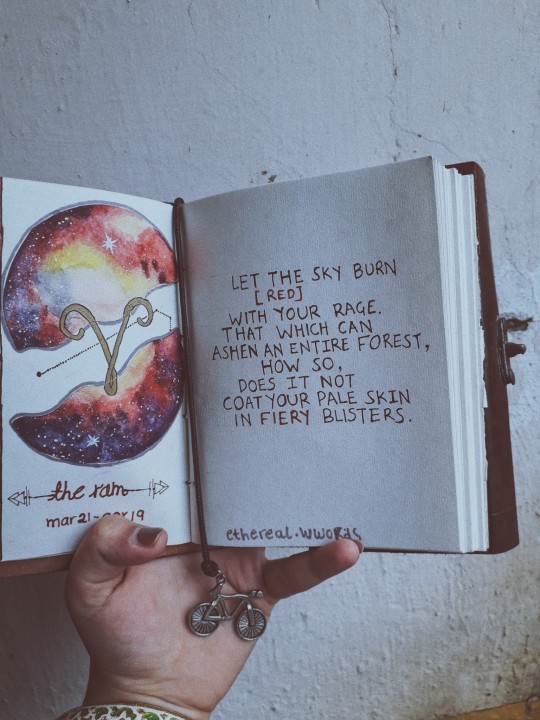 the ram
mar 21 - apr 19
LET THE SKY BURN
[RED]
WITH YOUR RAGE.
THAT WHICH CAN
ASHEN AN ENTIRE FOREST,
HOW SO,
DOES IT NOT
COAT YOUR PALE SKIN
IN FIERY BLISTERS.
ethereal.wworas